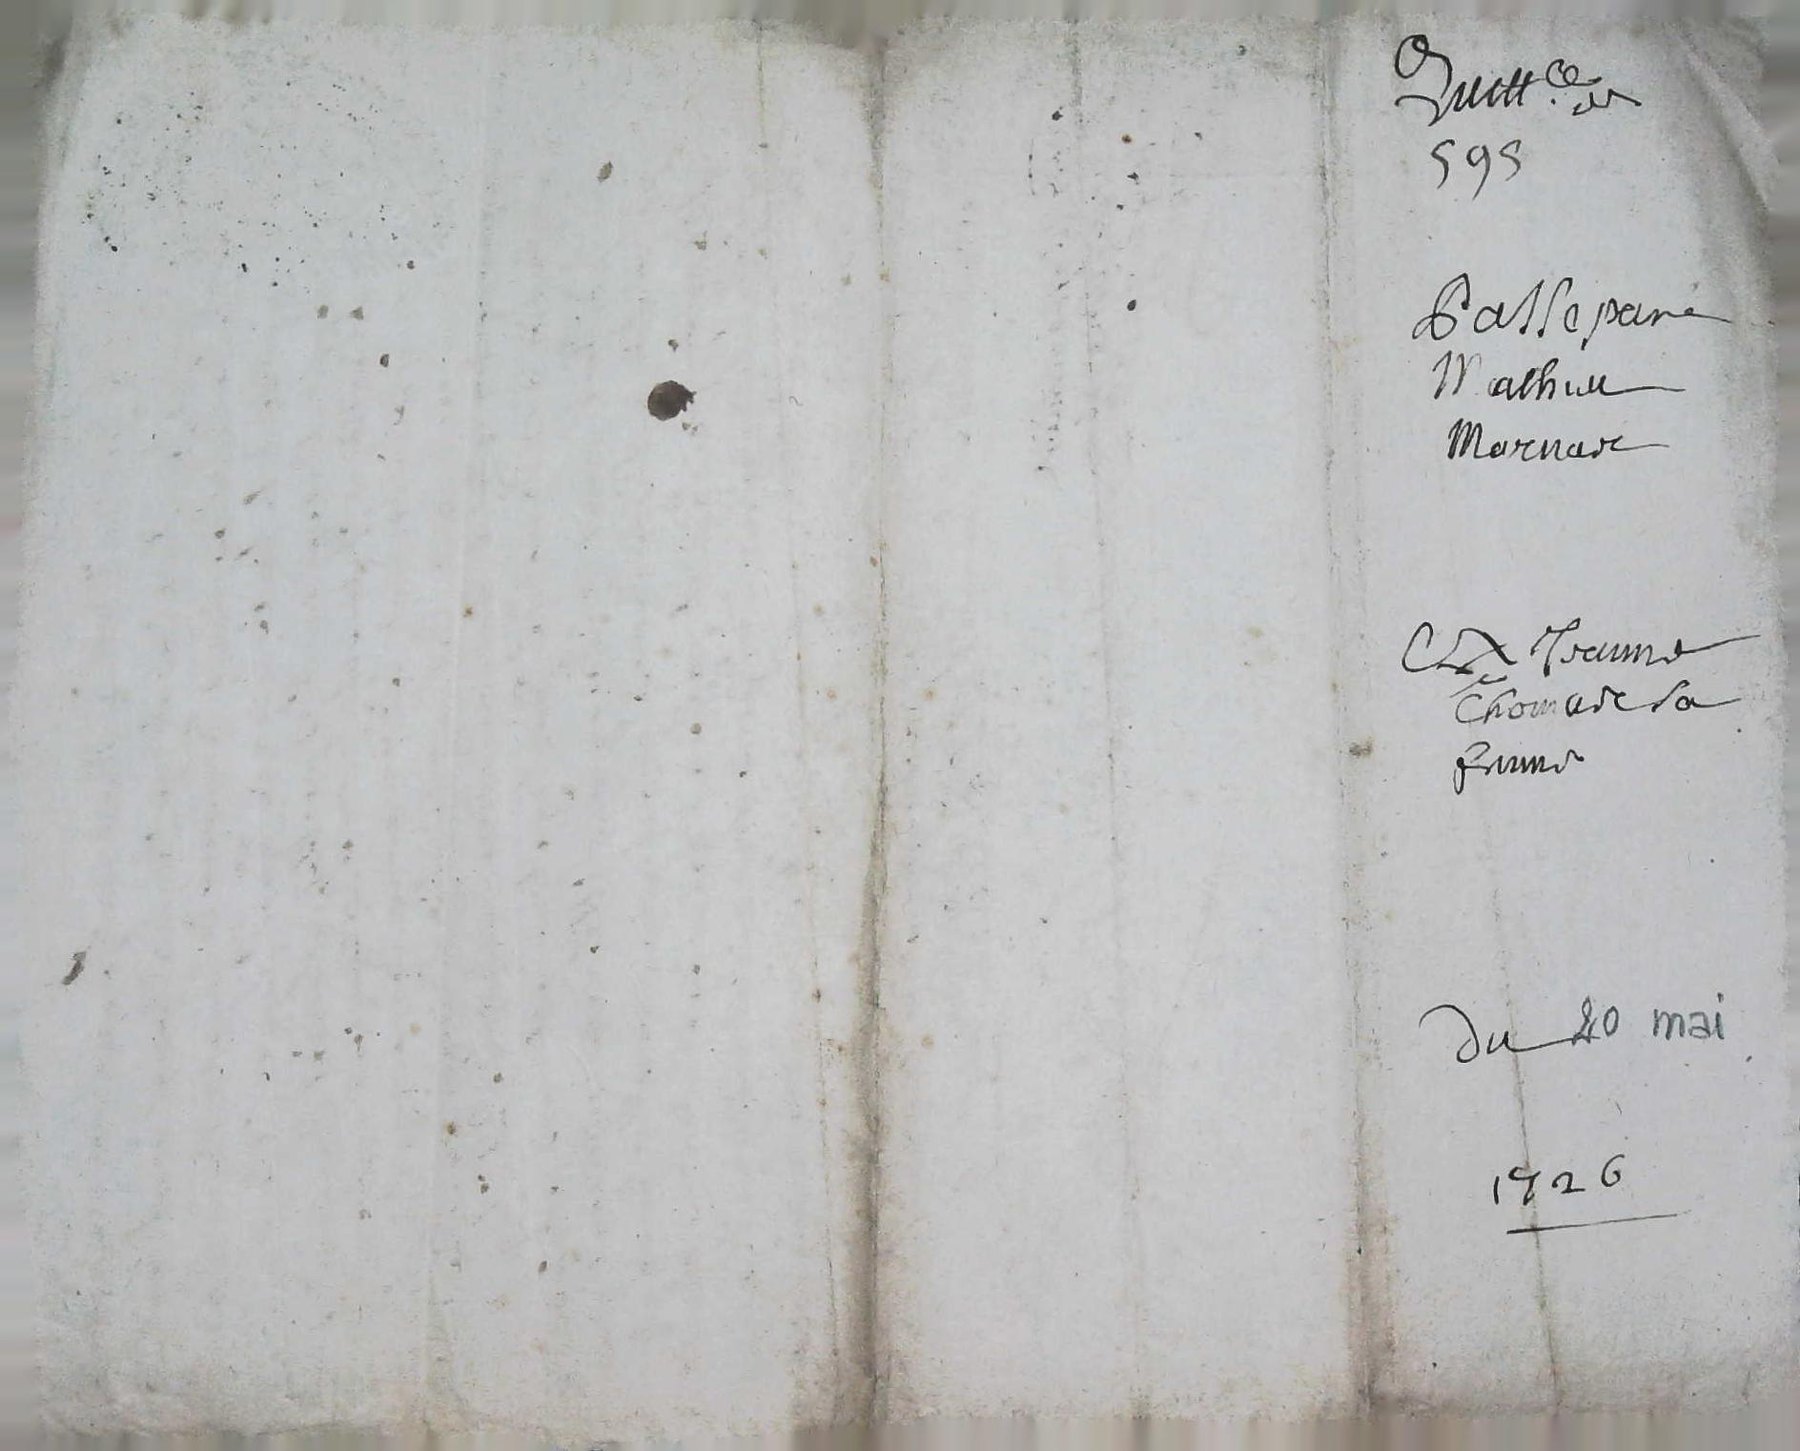 Quitt.ce de
595
Passe par
Mathieu
Marnas
Et Jeanne
Thomas sa
femme
Du 20 mai
1726